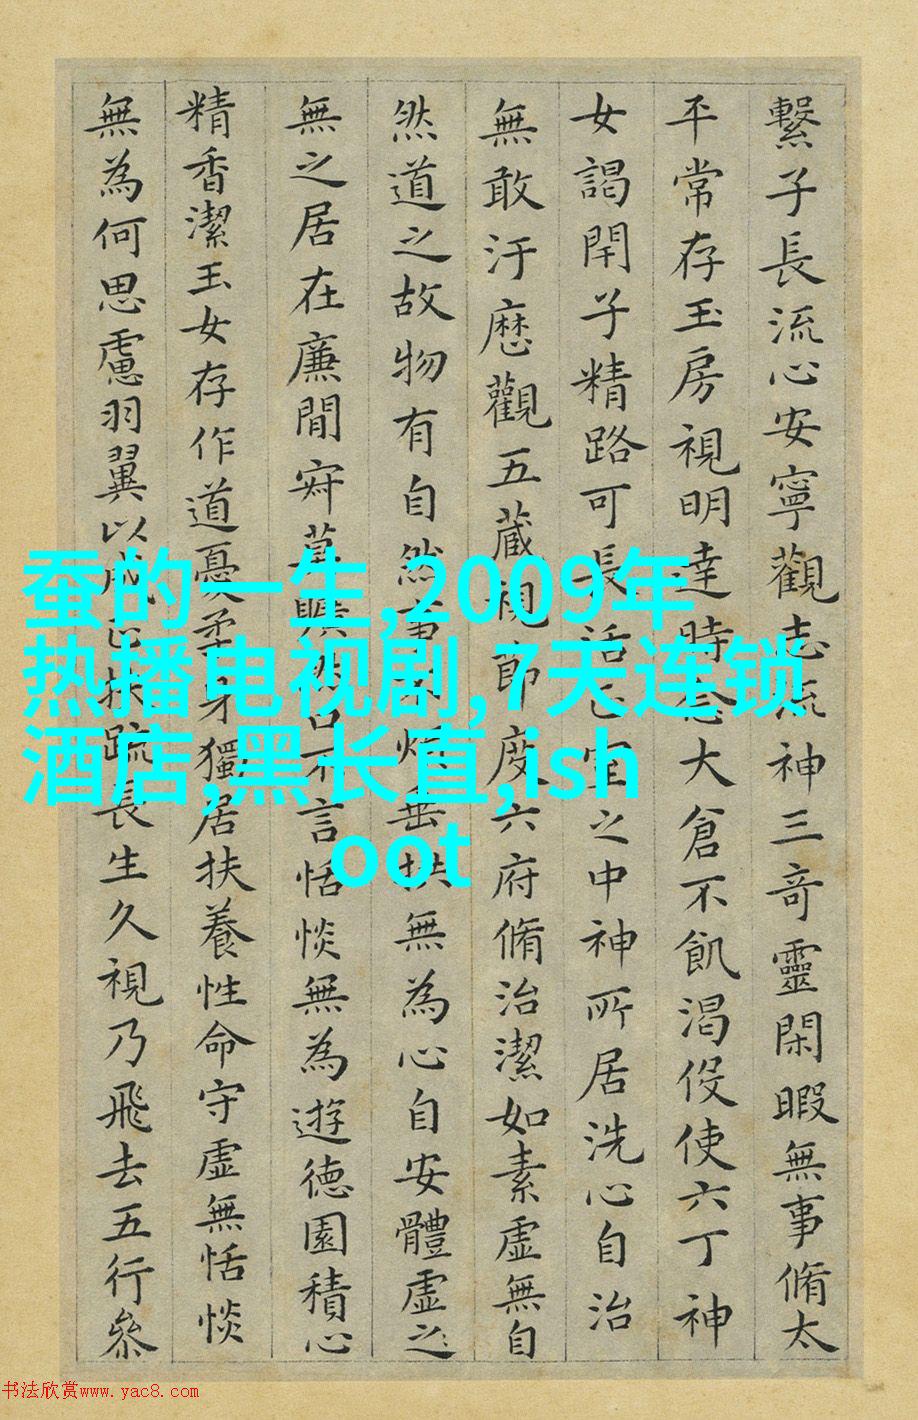 繫子長流心安寧觀志流神三奇靈閑暇無事脩太
平常存玉房視明達時念大倉不飢渴伇使六丁神
女謁閇子精路可長活正室之中神所居洗心自治
無敢汙歷觀五藏視節度六府脩治潔如素虛無自
然道之故物有自然事不煩垂扶無為心自安體虛之
無之居在廉間寂莫曠然口不言恬惔無為遊德園積心
精香潔玉女存作道憂柔身獨居扶養性命守虛無恬惔
無為何思慮羽翼以成正扶疏長生久視乃飛去五行參
蚕的一生,2009年
热播电视剧,7天连锁
酒店,黑长直,ish
oot
书法欣赏www.yac8.com